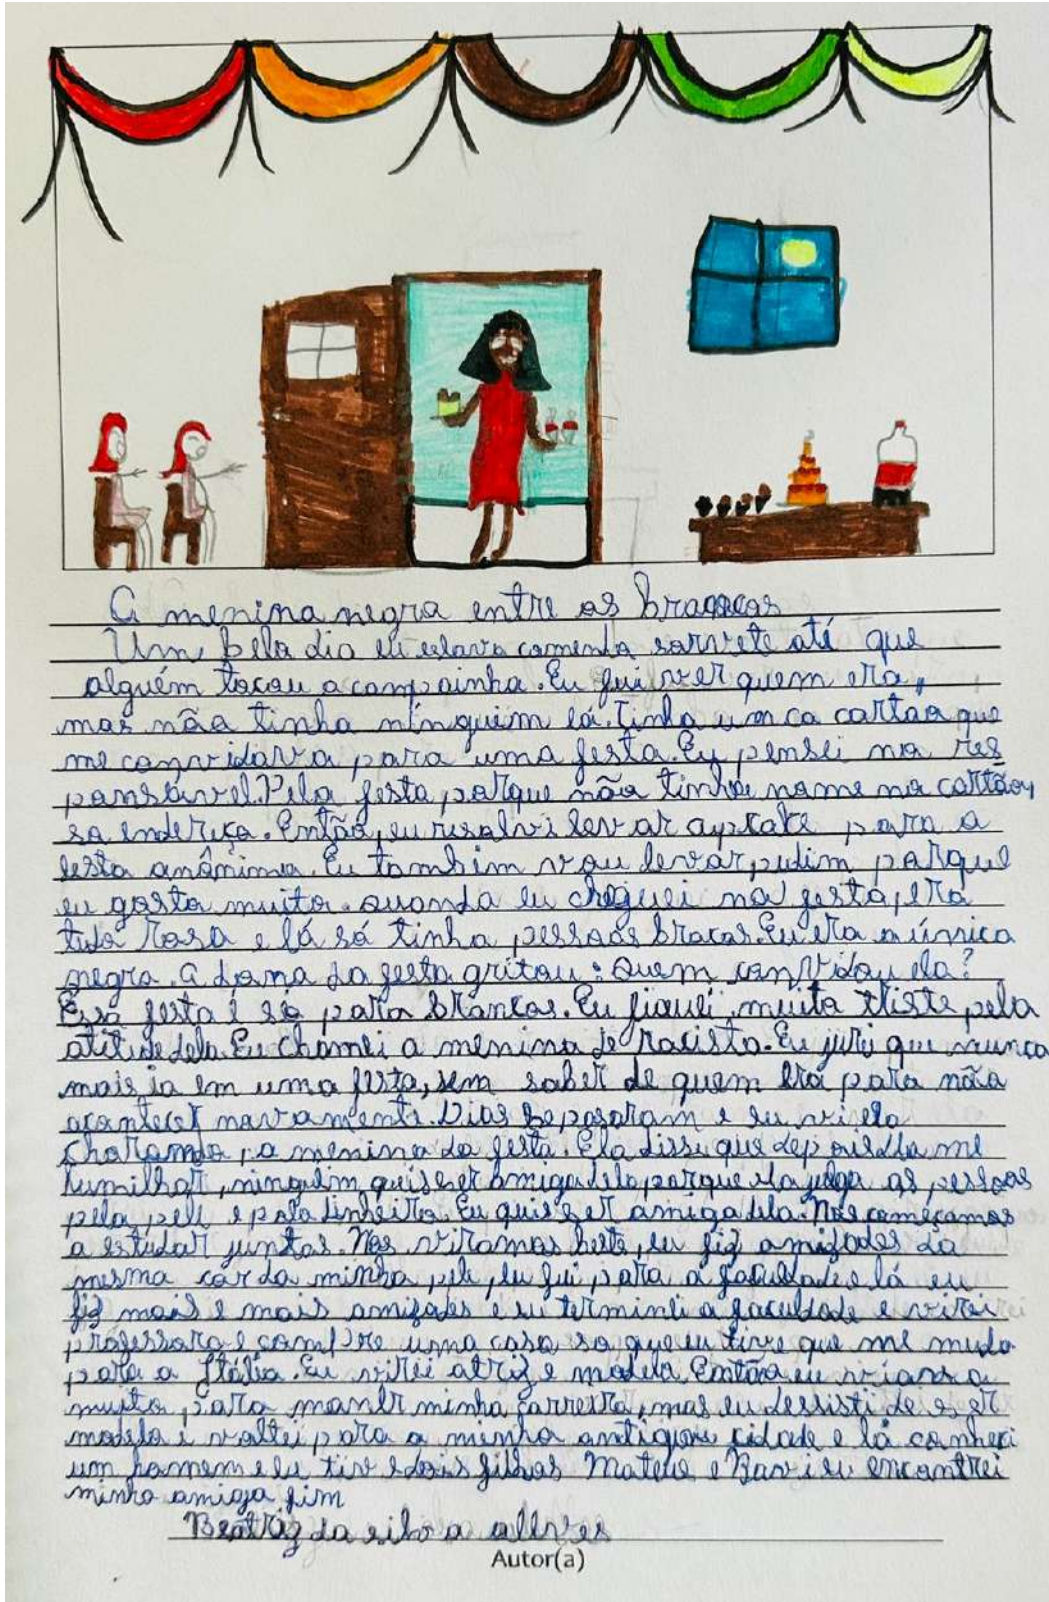 A menina negra entre as bracacas
Um bela dia eu estava comendo sorvete até que
alguém tocou a campainha. Eu fui ver quem era,
mas não tinha ninguém lá. Tinha um ca cartao que
me convidava para uma festa. Eu pensei na res
ponsável. Pela festa, porque não tinha nome no cartão,
so endereço. Então, eu resolvi levar para a
festa anônima. Eu também vou levar pudim porque
eu gosto muito. Quando eu cheguei na festa, era
tudo rosa e lá só tinha pessoas bracas. Eu era a única
negra. A dona da festa gritou: Quem convidou ela?
Essa festa é só para brancos. Eu fiquei muito triste pela
atitude dela. Eu chamei a menina de racista. Eu jurei que nunca
mais ia em uma festa, sem saber de quem era para não
acontecer novamente. Dias se pasaram e eu vi ela
chorando, a menina da festa. Ela disse que depois dela me
humilhar, ninguém quis ser amiga dela porque ela julga as pessoas
pela pele e pelo dinheiro. Eu quis ser amiga dela. Nós começamos
a estudar juntas. Nos viramos beste, eu fiz amizades da
mesma cor da minha pele, eu fui para a faculdade e lá eu
fiz mais e mais amizades e eu terminei a faculdade e virei
professora e compre uma casa so que eu tive que me muda
para a Itália. Eu virei atriz e modelo. Então eu viajava
muito para manter minha carreira, mas eu dessisti de ser
modelo e voltei para a minha antiga cidade e lá conheci
um homem e eu tive dois filhos Mateus e Davi eu encontrei
minha amiga fim
Beatriz da silva allves
Autor(a)